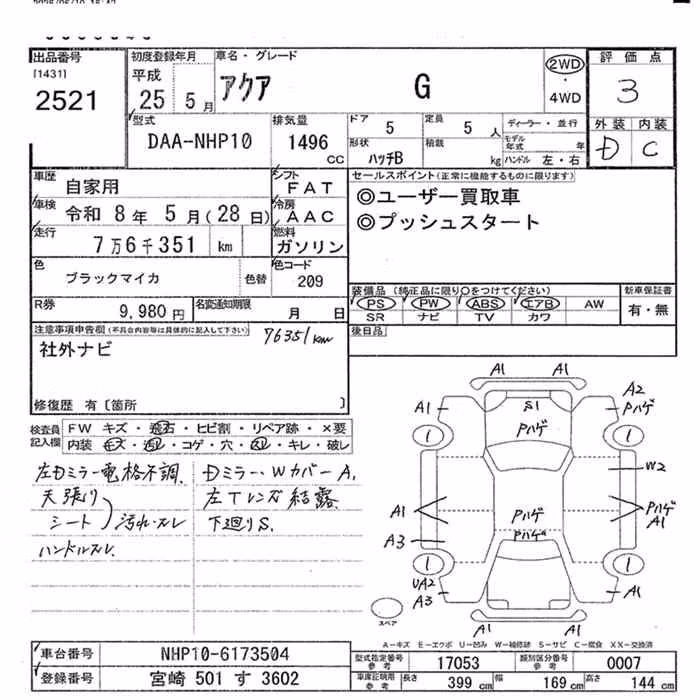 出品番号
[1431]
2521
初度登録年月
平成
25 5月
車名・グレード
アクア G
2WD
・
4WD
評価点
3
外装 内装
D C
型式
DAA-NHP10
排気量
1496
CC
ドア
5
定員
5 人
形状
ハッチB
積載
kg
ディーラー・並行
モデル年式 年
ハンドル 左・右
車歴
自家用
シフト
FAT
車検
令和 8年 5月(28日)
冷房
AAC
走行
7万6千351 km
燃料
ガソリン
色
ブラックマイカ
色替
色コード
209
R券
9,980円
名変通知期限
月 日
セールスポイント(正常に機能するものに限ります)
◎ユーザー買取車
◎プッシュスタート
装備品 (純正品に限り○をつけてください)
PS PW ABS エアB AW
SR ナビ TV カワ
新車保証書
有・無
後日品
注意事項申告欄(不具合内容等は具体的に記入して下さい)
76351km
社外ナビ
修復歴 有〔箇所 〕
検査員記入欄
FW キズ・飛石・ヒビ割・リペア跡・×要
内装 キズ・汚レ・コゲ・穴・スレ・キレ・破レ
左Dミラー電格不調、
天張り
シート
汚れ・スレ
ハンドルスレ、
Dミラー・WカバーA、
左Tレンズ結露
下廻りS、
A1 A1
A1
S1
Pハゲ
A2
Pハゲ
1
1
W2
A1
Pハゲ
Pハゲ
A1
A3
Pハゲ
1
1
UA2
A3
A1
A1 A1
スペア
A-キズ E-エクボ U-凹み W-補修跡 S-サビ C-腐食 XX-交換済
車台番号
NHP10-6173504
登録番号
宮崎 501 す 3602
型式指定番号
参考
17053
類別区分番号
参考
0007
車庫証明用
参考
長さ
399 cm
幅
169 cm
高さ
144 cm